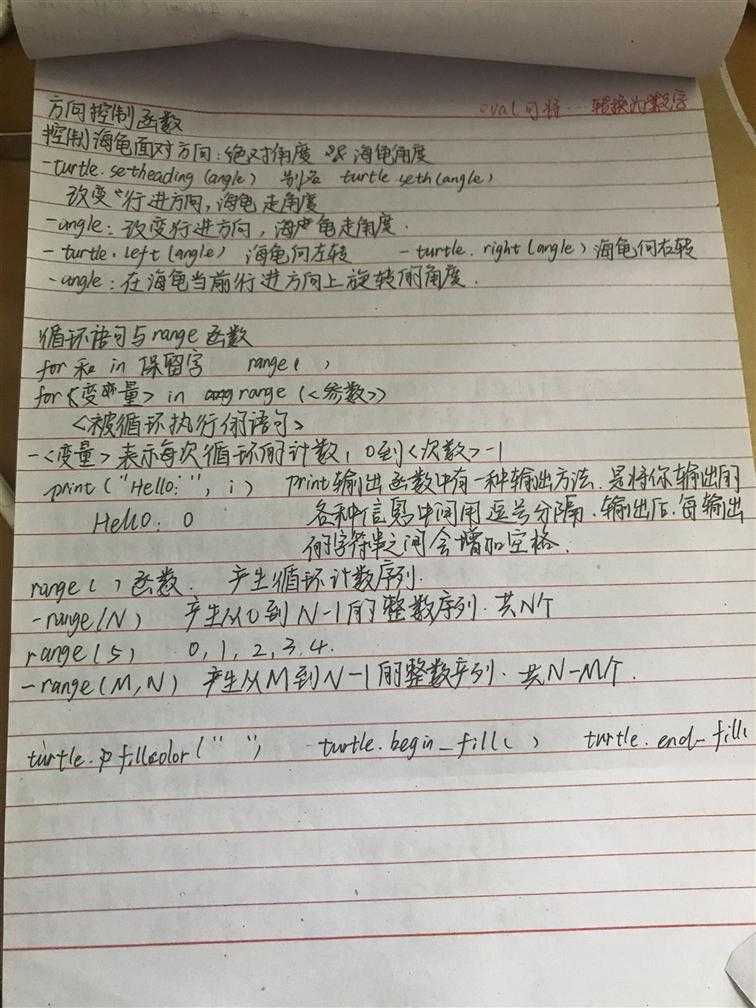 oval可将…转换为数字
方向控制函数
控制海龟面对方向:绝对角度 & 海龟角度
-turtle.setheading(angle) 别名 turtle.seth(angle)
改变行进方向,海龟走角度
-angle:改变行进方向,海龟走角度.
-turtle.left(angle) 海龟向左转 -turtle.right(angle)海龟向右转
-angle:在海龟当前行进方向上旋转的角度.
循环语句与range函数
for和in保留字 range( )
for<变量> in range(<参数>)
<被循环执行的语句>
-<变量>表示每次循环的计数,0到<次数>-1
print("Hello:", i) print输出函数中有一种输出方法.是将你输出的
Hello: 0 各种信息中间用逗号分隔.输出后.每输出
的字符串之间会增加空格.
range( )函数. 产生循环计数序列.
-range(N) 产生从0到N-1的整数序列.共N个
range(5) 0,1,2,3,4.
-range(M,N) 产生从M到N-1的整数序列.共N-M个.
turtle.fillcolor(" ") turtle.begin_fill( ) turtle.end_fill(